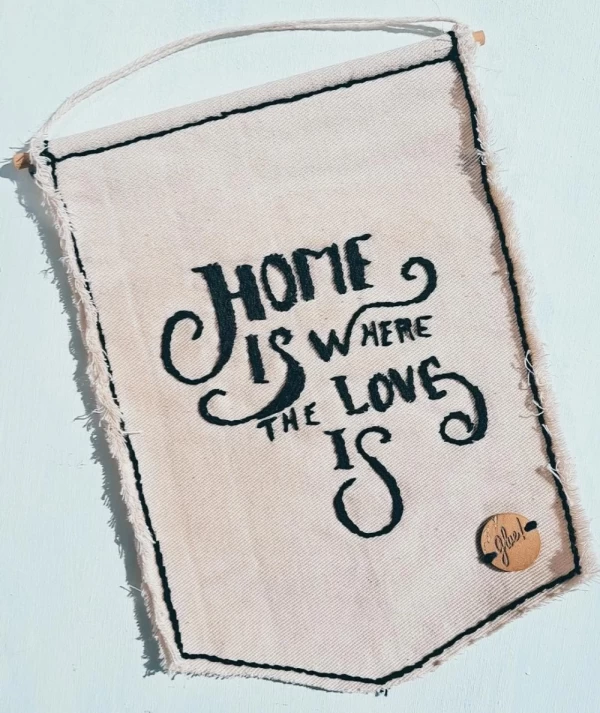 HOME
IS WHERE
THE LOVE
IS
glue!